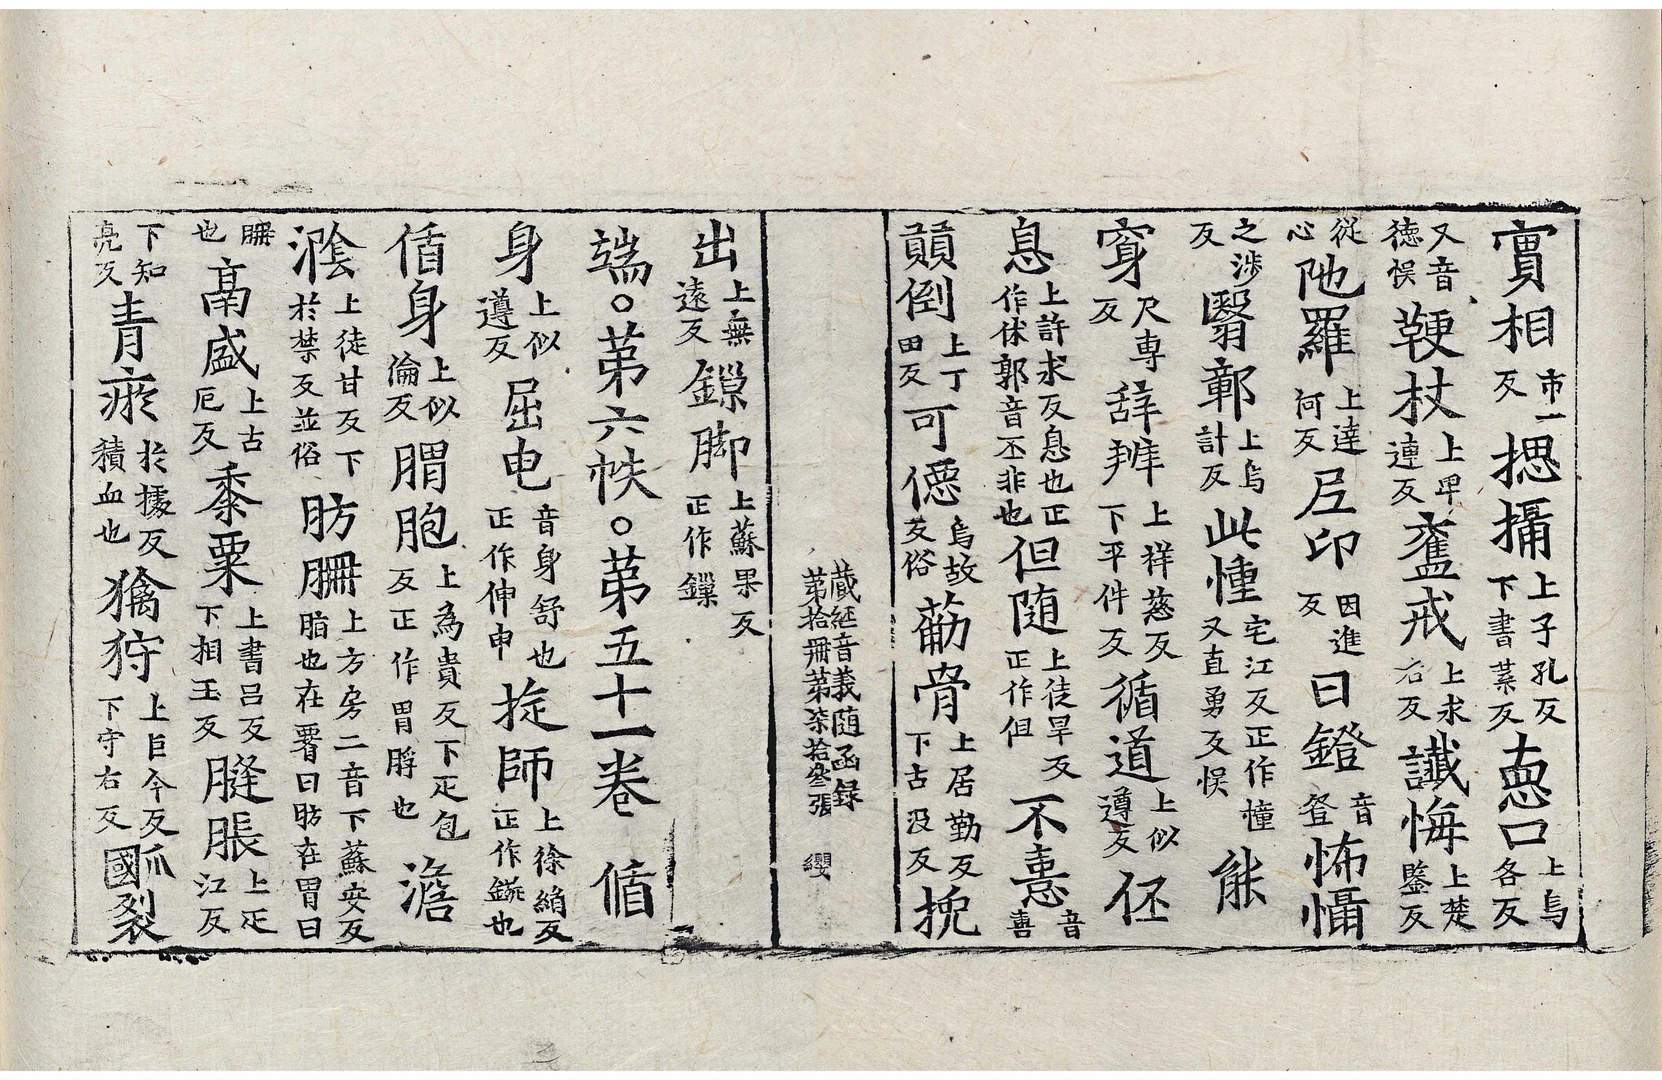 實相市一反揌㨤上子孔反下書葉反𢙣口上烏各反
又音徳悮鞕杖上卑連反𥁊戒上求右反讖悔上楚鑒反
從心阤羅上達何反𡰱印因進反曰鐙音登怖懾
之涉反翳鄣上烏計反此憧宅江反正作憧又直勇反悮能
穿尺専反辞辨上祥慈反下平件反循道上似遵反伾
息上許求反息也正作休郭音不非也但随上徒旱反正作但不憙音喜
顛倒上丁田反可僫烏故反俗荕骨上居勤反下古沒反挽
藏經音義随函録第拾册第柒拾叄張 纓
出上無遠反鏁脚上蘇果反正作鏁
端○第六帙○第五十一卷 循
身上似遵反屈电音身舒也正作伸申㨃師上徐絹反正作鏇也
循身上似倫反腪胞上為貴反下疋包反正作胃脬也澹
㵝上徒甘反下於禁反並俗肪𦙱上方房二音下蘇安反脂也在䏶曰肪在胃曰
𦙱也鬲盛上古厄反黍粟上書吕反下相玉反膖脹上疋江反
下知亮反青瘀於據反積血也獦狩上巨今反下守右反爴裂